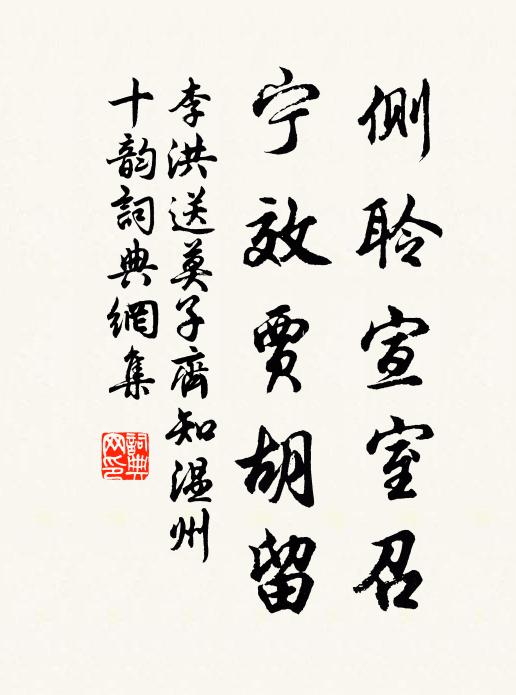 側聆宣室召
宁效贾胡留
李洪送莫子齊知温州
十韵詞典網集
詞典网印